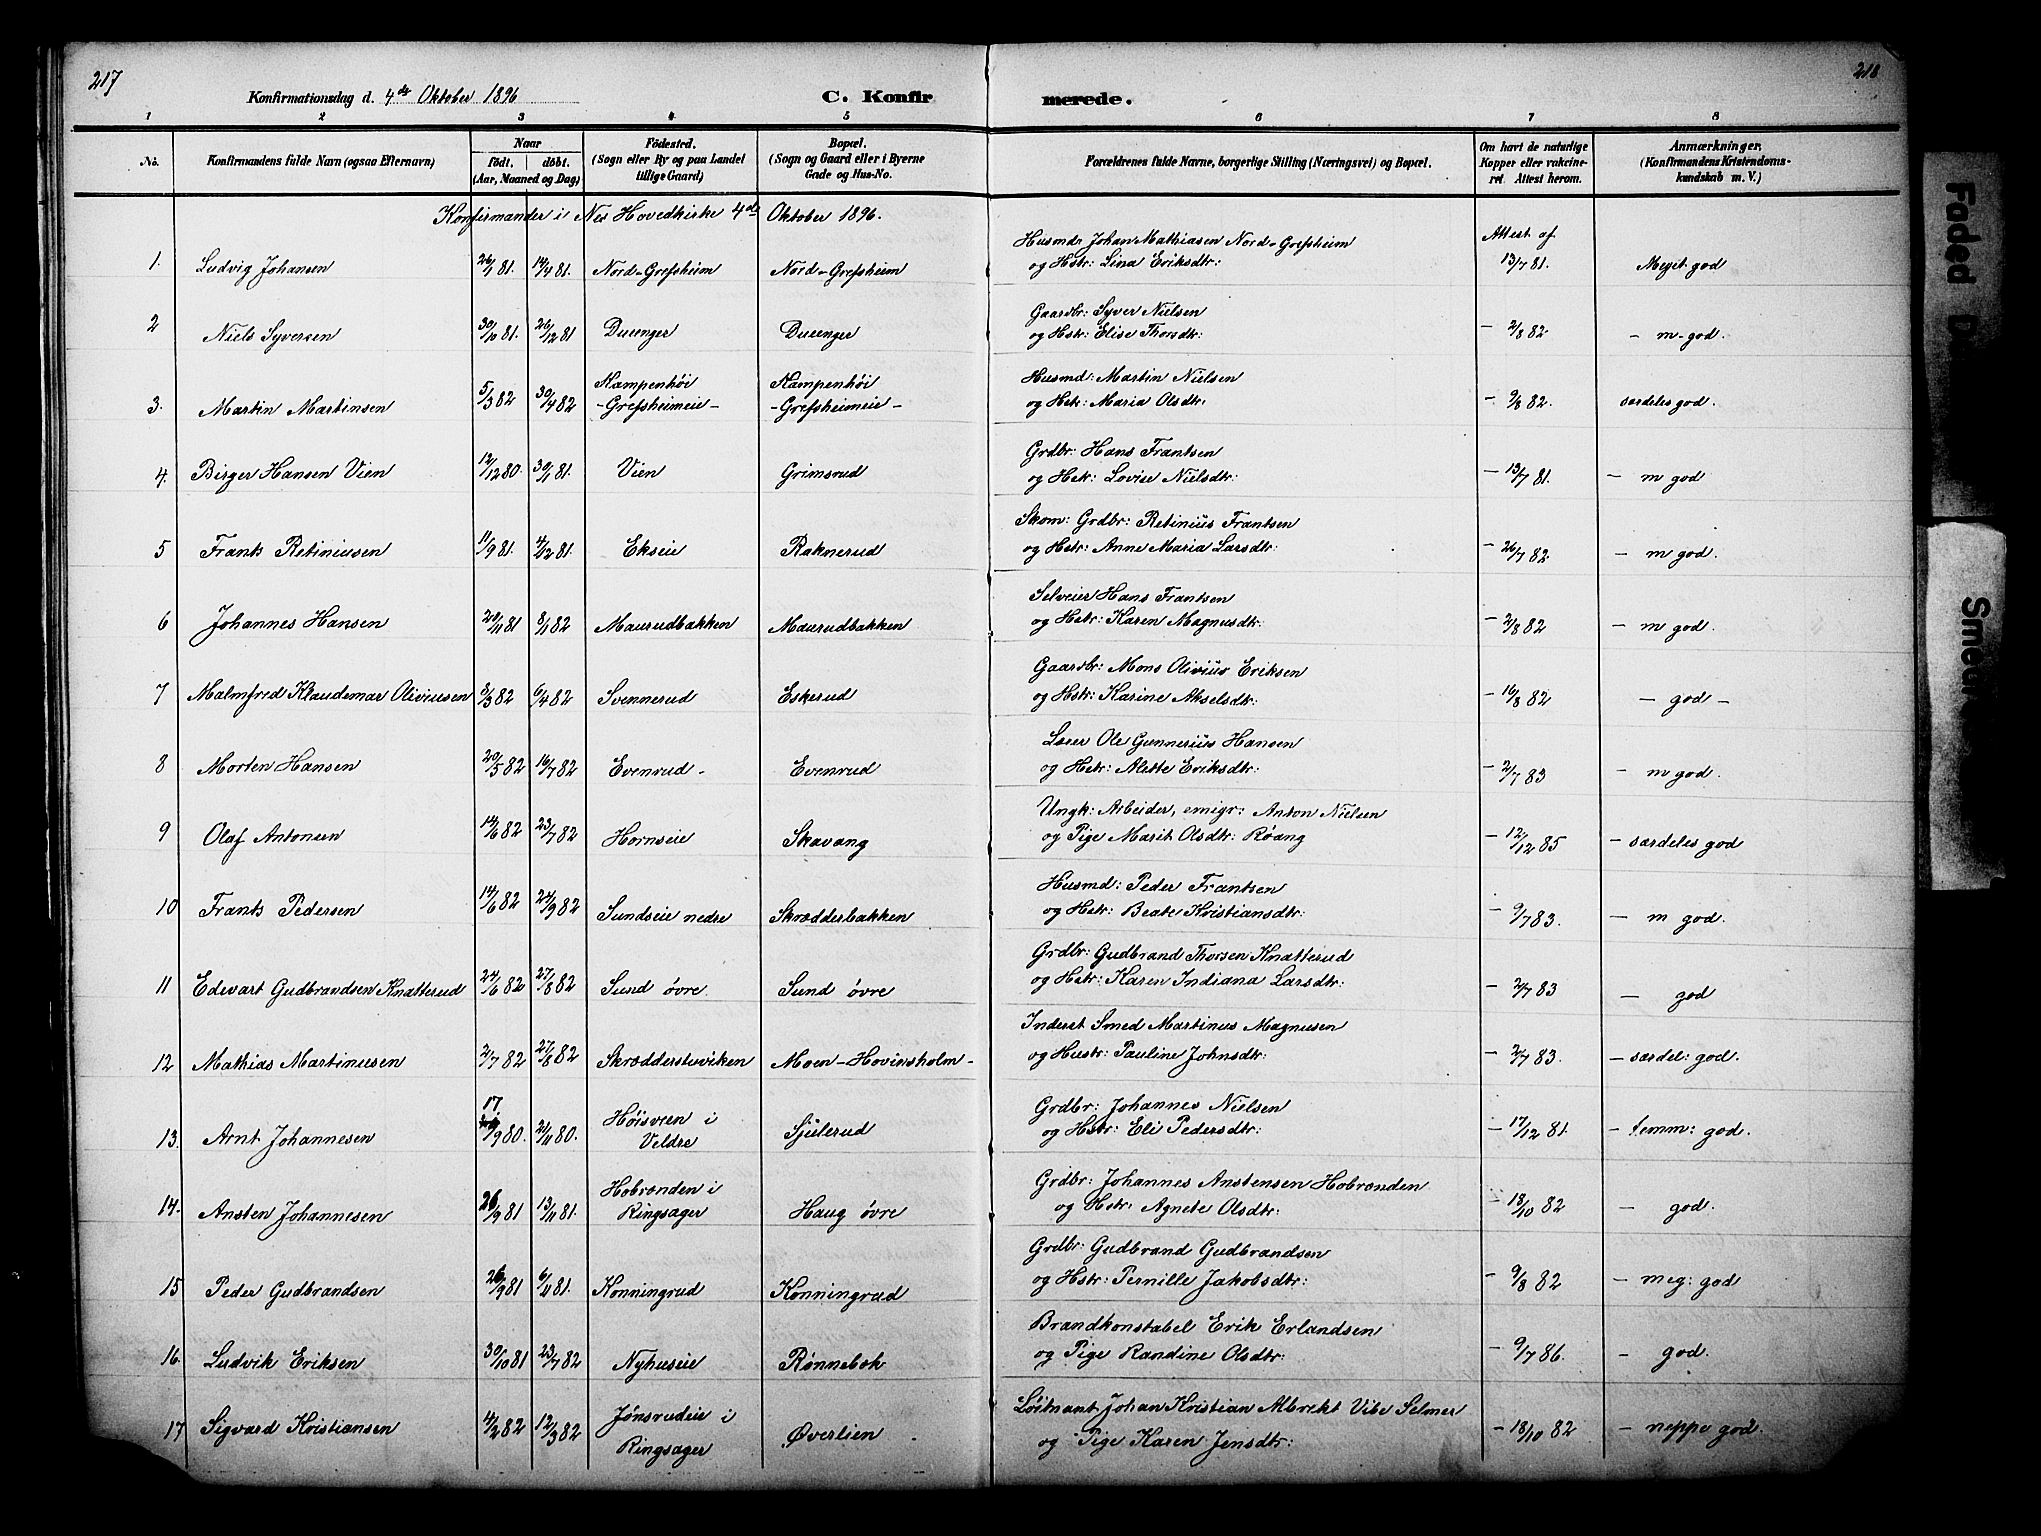 217
218
Konfirmationsdag d. 4de Oktober 1896
C. Konfirmerede.
1 2 3 4 5 6 7 8
No.
Konfirmandens fulde Navn (ogsaa Efternavn)
Naar
födt. döbt.
(Aar, Maaned og Dag)
Födested.
(Sogn eller By og paa Landet
tillige Gaard)
Bopæl.
(Sogn og Gaard eller i Byerne
Gade og Hus-No.
Forældrenes fulde Navne, borgerlige Stilling (Næringsvei) og Bopæl.
Om havt de naturlige
Kopper eller vakcine-
ret. Attest herom.
Anmærkninger.
(Konfirmandens Kristendoms-
kundskab m. V.)
Konfirmander i Nes Hovedkirke 4de Oktober 1896.
Husmd: Johan Mathiasen Nord-Grefsheim Attest af
1. Ludvig Johansen 26/1 81. 14/4 81. Nord-Grefsheim Nord-Grefsheim og Hstr: Lina Eriksdtr: 13/7 81. Meget god
Gaardbr: Syver Nielsen
2 Niels Syversen 30/10 81. 26/12 81 Duenger Duenger og Hstr: Elise Thorsdtr: - 2/8 82 - m-god.
Kampenhöi Kampenhöi Husmd: Martin Nielsen
3. Martin Martinsen 5/3 82 30/4 82 -Grefsheimeie- -Grefsheimeie- og Hstr: Maria Olsdtr: - 9/8 82. særdeles god.
Grdbr: Hans Frantsen
4. Birger Hansen Vien 12/12 80. 30/1 81. Vien Grimsrud og Hstr: Lovise Nielsdtr: - 13/7 81. - m god
Skom: Grdbr: Retinius Frantsen
5 Frants Retiniusen 11/9 81. 4/12 81. Ekseie Raknerud og Hstr: Anne Maria Larsdtr: - 26/7 82. - m god.
Selveier Hans Frantsen
6 Johannes Hansen 20/11 81 8/1 82 Maurudbakken Maurudbakken og Hstr: Karen Magnusdtr: - 2/8 82 - m god.
Gaardbr: Mons Olivius Eriksen
7 Malmfred Klaudemar Oliviusen 8/3 82 6/4 82 Svennerud Eskerud og Hstr: Karine Akselsdtr: - 16/8 82 - god -
Lærer Ole Gunnerius Hansen
8 Morten Hansen 20/5 82 16/7 82 Evenrud- Evenrud og Hstr: Alette Eriksdtr: - 2/7 83 - m god.
Ungk: Arbeider, emigr: Anton Nielsen
9 Olaf Antonsen 14/6 82 23/7 82 Hornseie Skavang og Pige Marit Olsdtr: Röang - 12/12 85 - særdeles god
Husmd: Peder Frantsen
10 Frants Pedersen 14/6 82 24/9 82 Sundseie nedre Skrædderbakken og Hstr: Beate Kristiansdtr: - 9/7 83. - m god.
Grdbr: Gudbrand Thorsen Knatterud
11 Edevart Gudbrandsen Knatterud 24/6 82 27/8 82 Sund övre. Sund övre og Hstr: Karen Indiana Larsdtr: - 2/7 83 - god
Inderst Smed Martinus Magnusen
12 Mathias Martinusen 2/7 82 27/8 82 Skrædderstuviken Moen-Hovinsholm- og Hustr: Pauline Johnsdtr: - 2/7 83. - særdel: god.
17. Höisveen i Grdbr: Johannes Nielsen
13. Arnt Johannesen /9 80. 21/11 80. Veldre Sjulerud og Hstr: Eli Pedersdtr: - 17/12 81. - temm: god.
Hobrænden i Grdbr: Johannes Anstensen Hobrænden
14. Ansten Johannesen 26/9 81 13/11 81. Ringsager Haug övre og Hstr: Agnete Olsdtr: - 18/10 82 - god.
Grdbr: Gudbrand Gudbrandsen
15 Peder Gudbrandsen 26/9 81 6/11 81. Konningrud Konningrud og Hstr: Pernille Jakobsdtr: - 9/8 82 - meg: god
Brandkonstabel Erik Erlandsen
16. Ludvik Eriksen 30/10 81 23/7 82 Nyhuseie Rønnebek og Pige Randine Olsdtr: - 9/7 86. - god.
Jönsrudeie i Löitnant Johan Kristian Albrekt Vibe Selmer
17 Sigvard Kristiansen 4/2 82 12/3 82 Ringsager Øverlien og Pige Karen Jensdtr: - 18/10 82 - neppe god.
Faded D